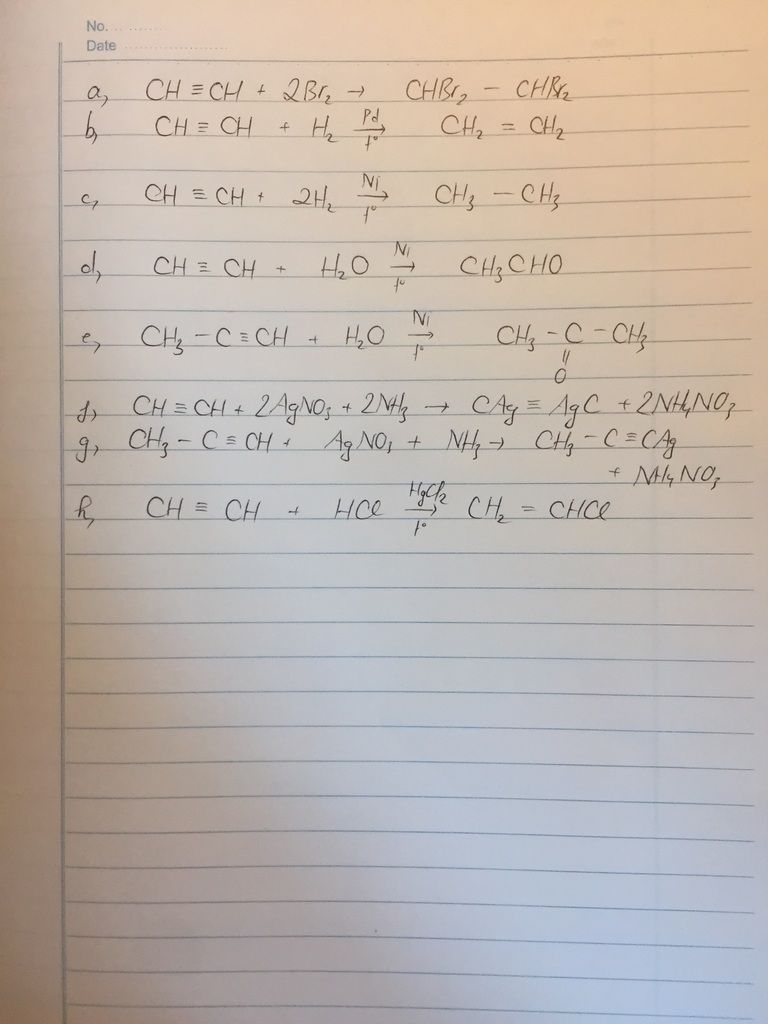 No. ........
Date ......................
a, CH ≡ CH + 2Br₂ → CHBr₂ – CHBr₂
b, CH ≡ CH + H₂ →[Pd, t°] CH₂ = CH₂
c, CH ≡ CH + 2H₂ →[Ni, t°] CH₃ – CH₃
d, CH ≡ CH + H₂O →[Ni, t°] CH₃CHO
e, CH₃ – C ≡ CH + H₂O →[Ni, t°] CH₃ – C – CH₃
||
O
f, CH ≡ CH + 2AgNO₃ + 2NH₃ → CAg ≡ AgC + 2NH₄NO₃
g, CH₃ – C ≡ CH + AgNO₃ + NH₃ → CH₃ – C ≡ CAg
+ NH₄NO₃
h, CH ≡ CH + HCl →[HgCl₂, t°] CH₂ = CHCl